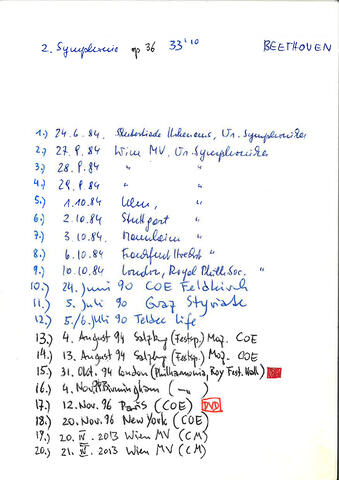 2. Symphonie op 36 33'10 BEETHOVEN
1.) 24.6.84. Hohenems, Wr. Symphoniker
2.) 27.9.84 Wien MV, Wr. Symphoniker
3.) 28.9.84 " "
4.) 29.9.84 " "
5.) 1.10.84 Ulm, "
6.) 2.10.84 Stuttgart "
7.) 3.10.84. Mannheim "
8.) 6.10.84 Frankfurt Höchst "
9.) 10.10.84 London, Royal Philh. Soc. "
10.) 24. Juni 90 COE Feldkirch
11.) 5. Juli 90 Graz Styriate
12.) 5./6. Juli 90 Teldec life
13.) 4. August 94 Salzburg (Festsp.) Moz. COE
14.) 13. August 94 Salzburg (Festsp.) Moz. COE
15.) 31. Okt. 94 London (Philharmonia, Roy Fest. Hall)
16.) 4. Nov. 94 Birmingham ( —„— )
17.) 12. Nov. 96 Paris (COE) DVD
18.) 20. Nov. 96 New York (COE)
19.) 20. IV. 2013 Wien MV (CM)
20.) 21. IV. 2013 Wien MV (CM)